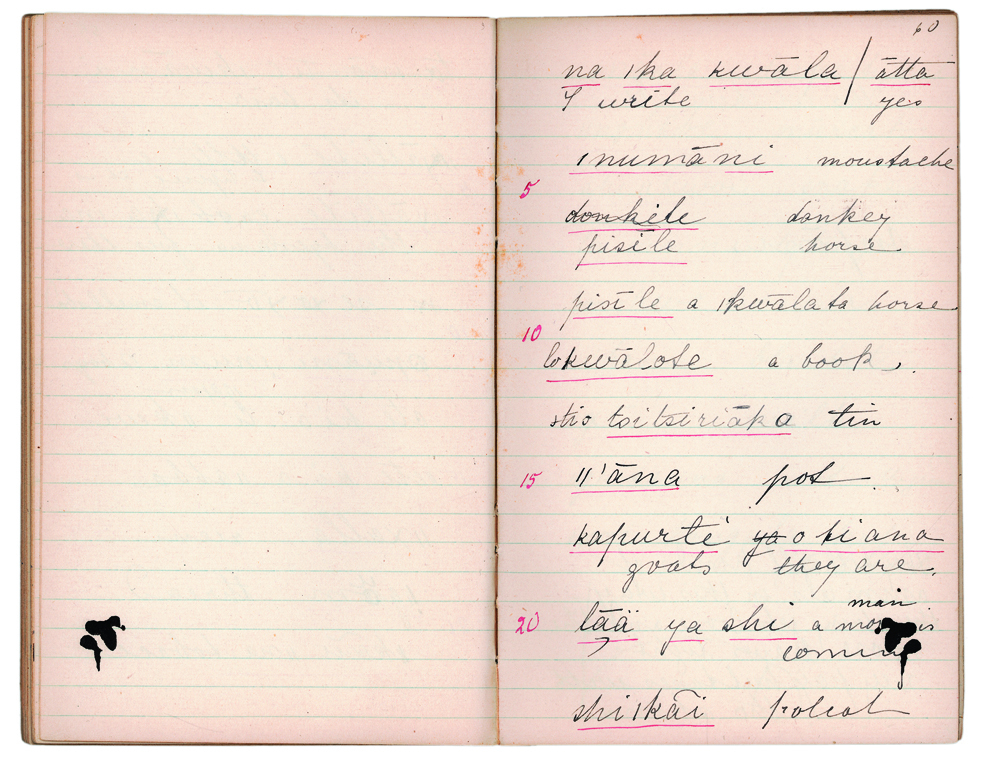 60
na ıka kwāla / ātta
I write yes
ınumāni moustache
5
donkile donkey
pisile horse
pisīle a ıkwālata horse
10
lokwālote a book.
stio tsitsiriāka tin
15 ıı'āna pot.
kapurti ya o tiana
goats they are.
man
20 tāä ya shi a is
coming
shiıkāi